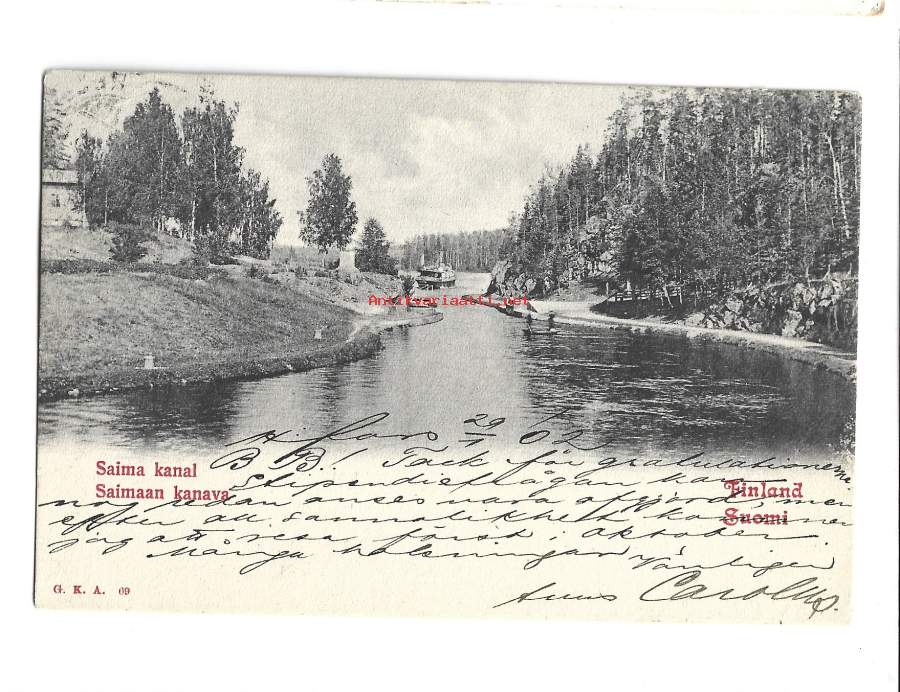 Antikvariaatti.net
H.fors 29/ 02.
Saima kanal
Saimaan kanava
B B! Tack för gratulationerna.
Stipendiefrågan kan
nog redan anses vara afgjord, men
efter all sannolikhet kommer
jag att resa först i oktober.
Många helsningar Vänligen
Finland
Suomi
G. K. A. 69